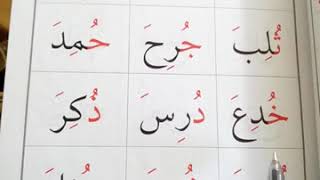 ثُلِبَ جُرِحَ حُمِدَ
خُدِعَ دُرِسَ ذُكِرَ